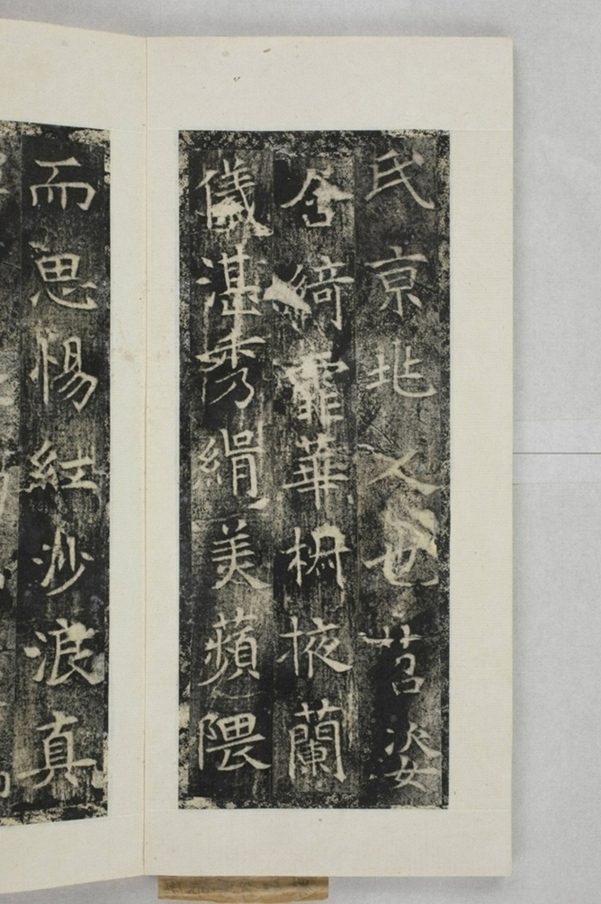 氏京兆人也苕姿
含綺霏華椒掖蘭
儀湛秀絹美蘋隈
而思惕紅沙浪真